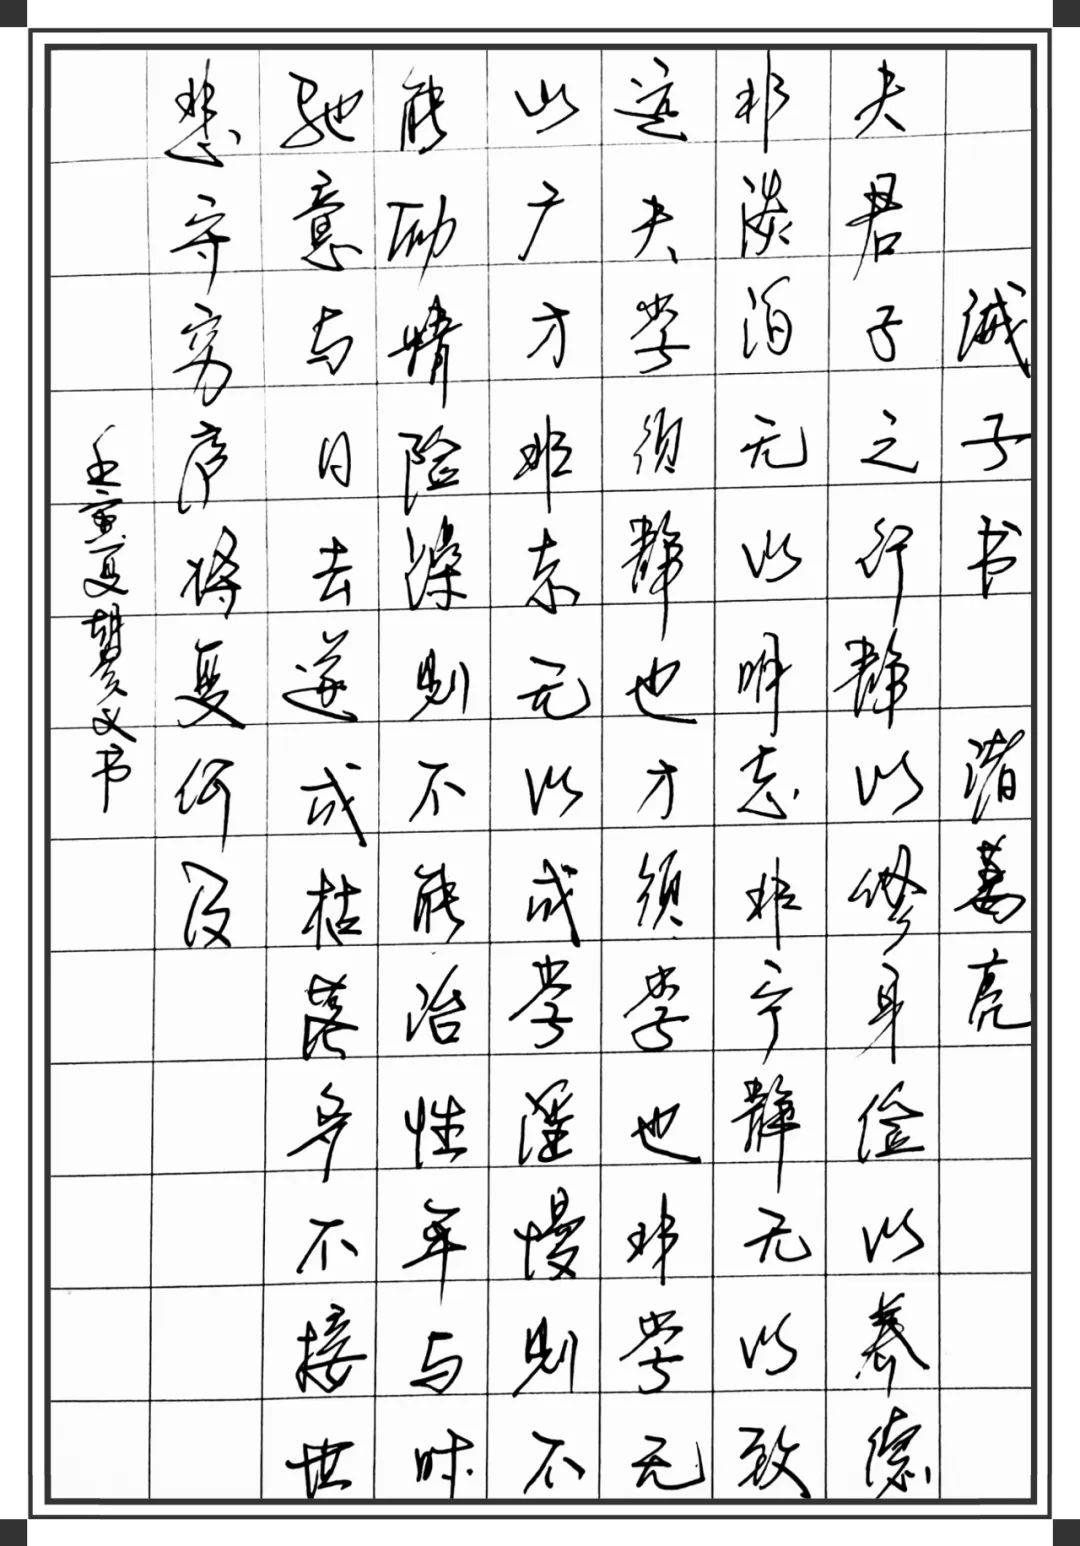 诫子书 诸葛亮
夫君子之行静以修身俭以养德
非淡泊无以明志非宁静无以致
远夫学须静也才须学也非学无
以广才非志无以成学淫慢则不
能励精险躁则不能治性年与时
驰意与日去遂成枯落多不接世
悲守穷庐将复何及
壬寅夏 义书